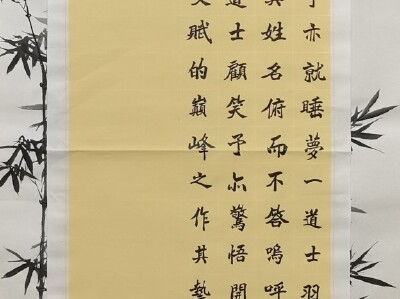 予亦就睡夢一道士羽
其姓名俯而不答嗚呼
道士顧笑予尒驚悟開
賦的巔峰之作其藝